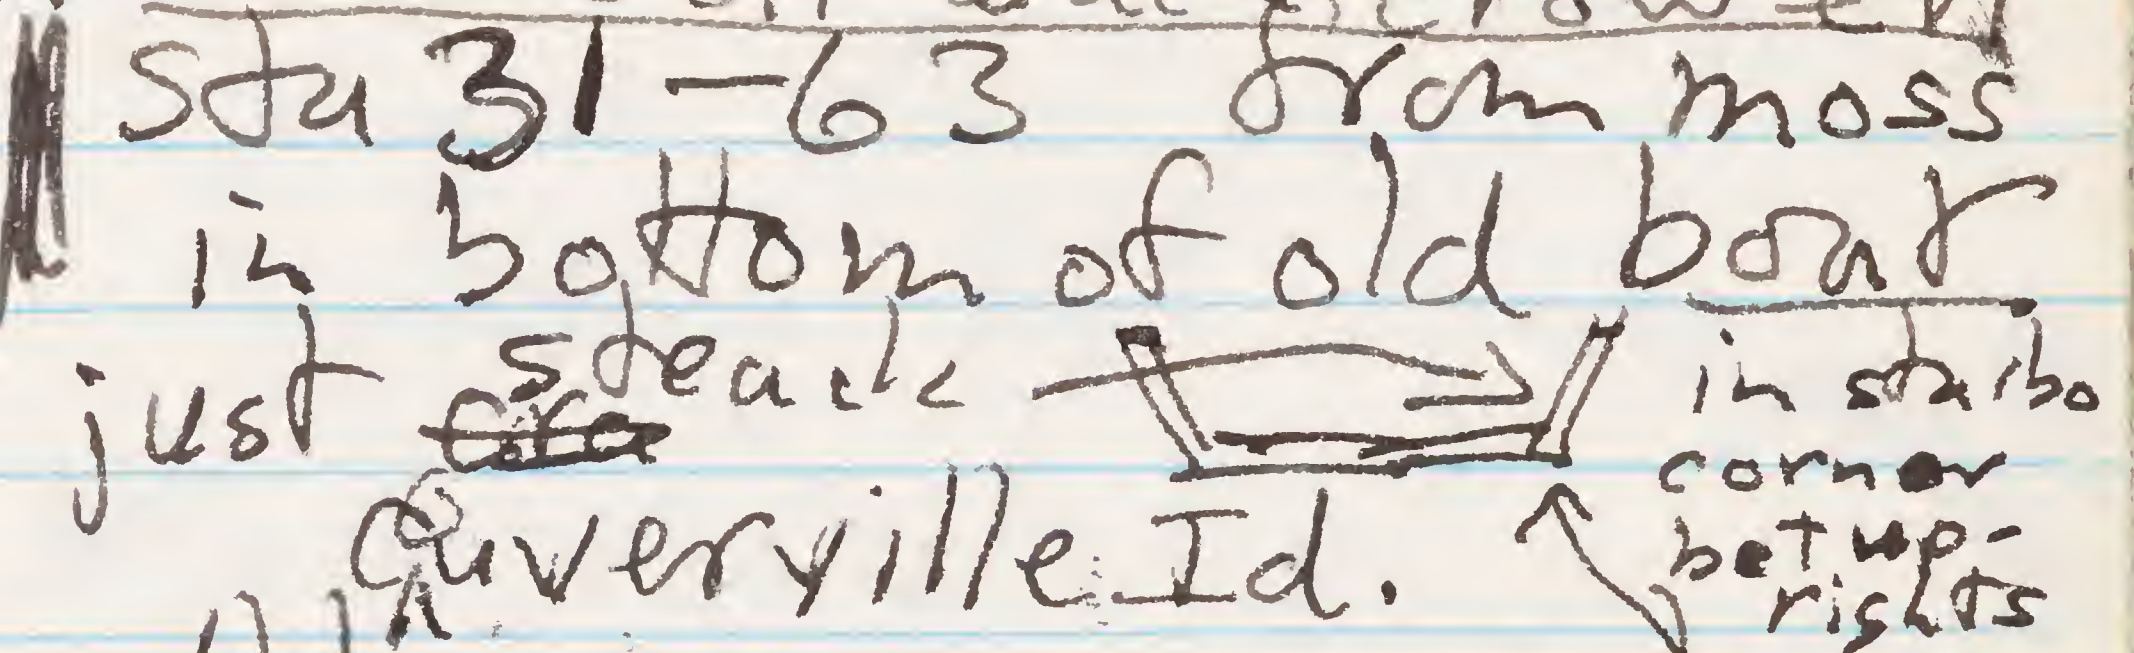 sta 31-63 from moss
in bottom of old boat
just steack
Cuverville Id.
in starbo
corner
bet up-
rights